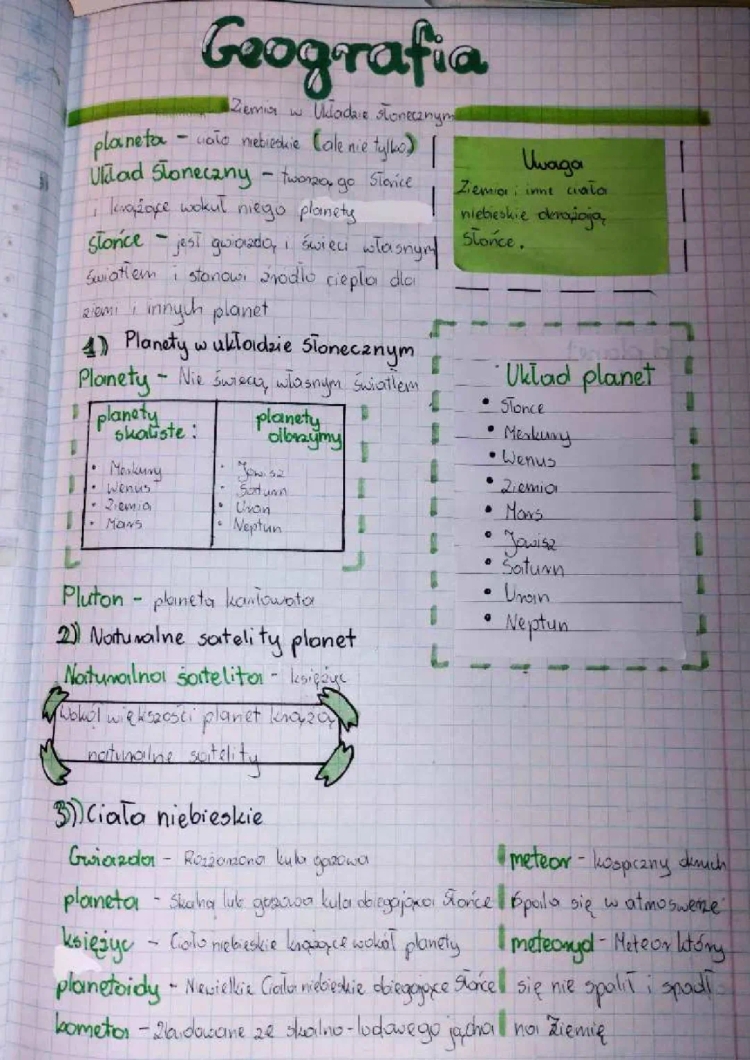 Geografia
Ziemia w Układzie słonecznym
planeta - ciało niebieskie (ale nie tylko)
Układ Słoneczny - tworzą go Słońce
i krążące wokuł niego planety
Słońce - jest gwiazdą i świeci własnym
światłem i stanowi źródło ciepła dla
ziemi i innych planet
Uwaga
Ziemia i inne ciała
niebieskie okrążają
Słońce.
1) Planety w układzie Słonecznym
Planety - Nie świecą własnym światłem
planety
skaliste:
• Merkury
• Wenus
• Ziemia
• Mars
planety
olbrzymy
• Jowisz
• Saturn
• Uran
• Neptun
Układ planet
• Słońce
• Merkury
• Wenus
• Ziemia
• Mars
• Jowisz
• Saturn
• Uran
• Neptun
Pluton - planeta karłowata
2) Naturalne satelity planet
Naturalna satelita - księżyc
Wokół większości planet krążą
naturalne satelity
3) Ciała niebieskie
Gwiazda - Rozżarzona kula gazowa
planeta - Skalna lub gazowa kula obiegająca Słońce
księżyc - Ciało niebieskie krążące wokół planety
planetoidy - Niewielkie Ciała niebieskie obiegające Słońce
kometa - Zbudowane ze skalno-lodowego jądra
meteor - kospiczny okruch
Spala się w atmoswerze
meteoryd - Meteor który
się nie spalił i spadł
na Ziemię